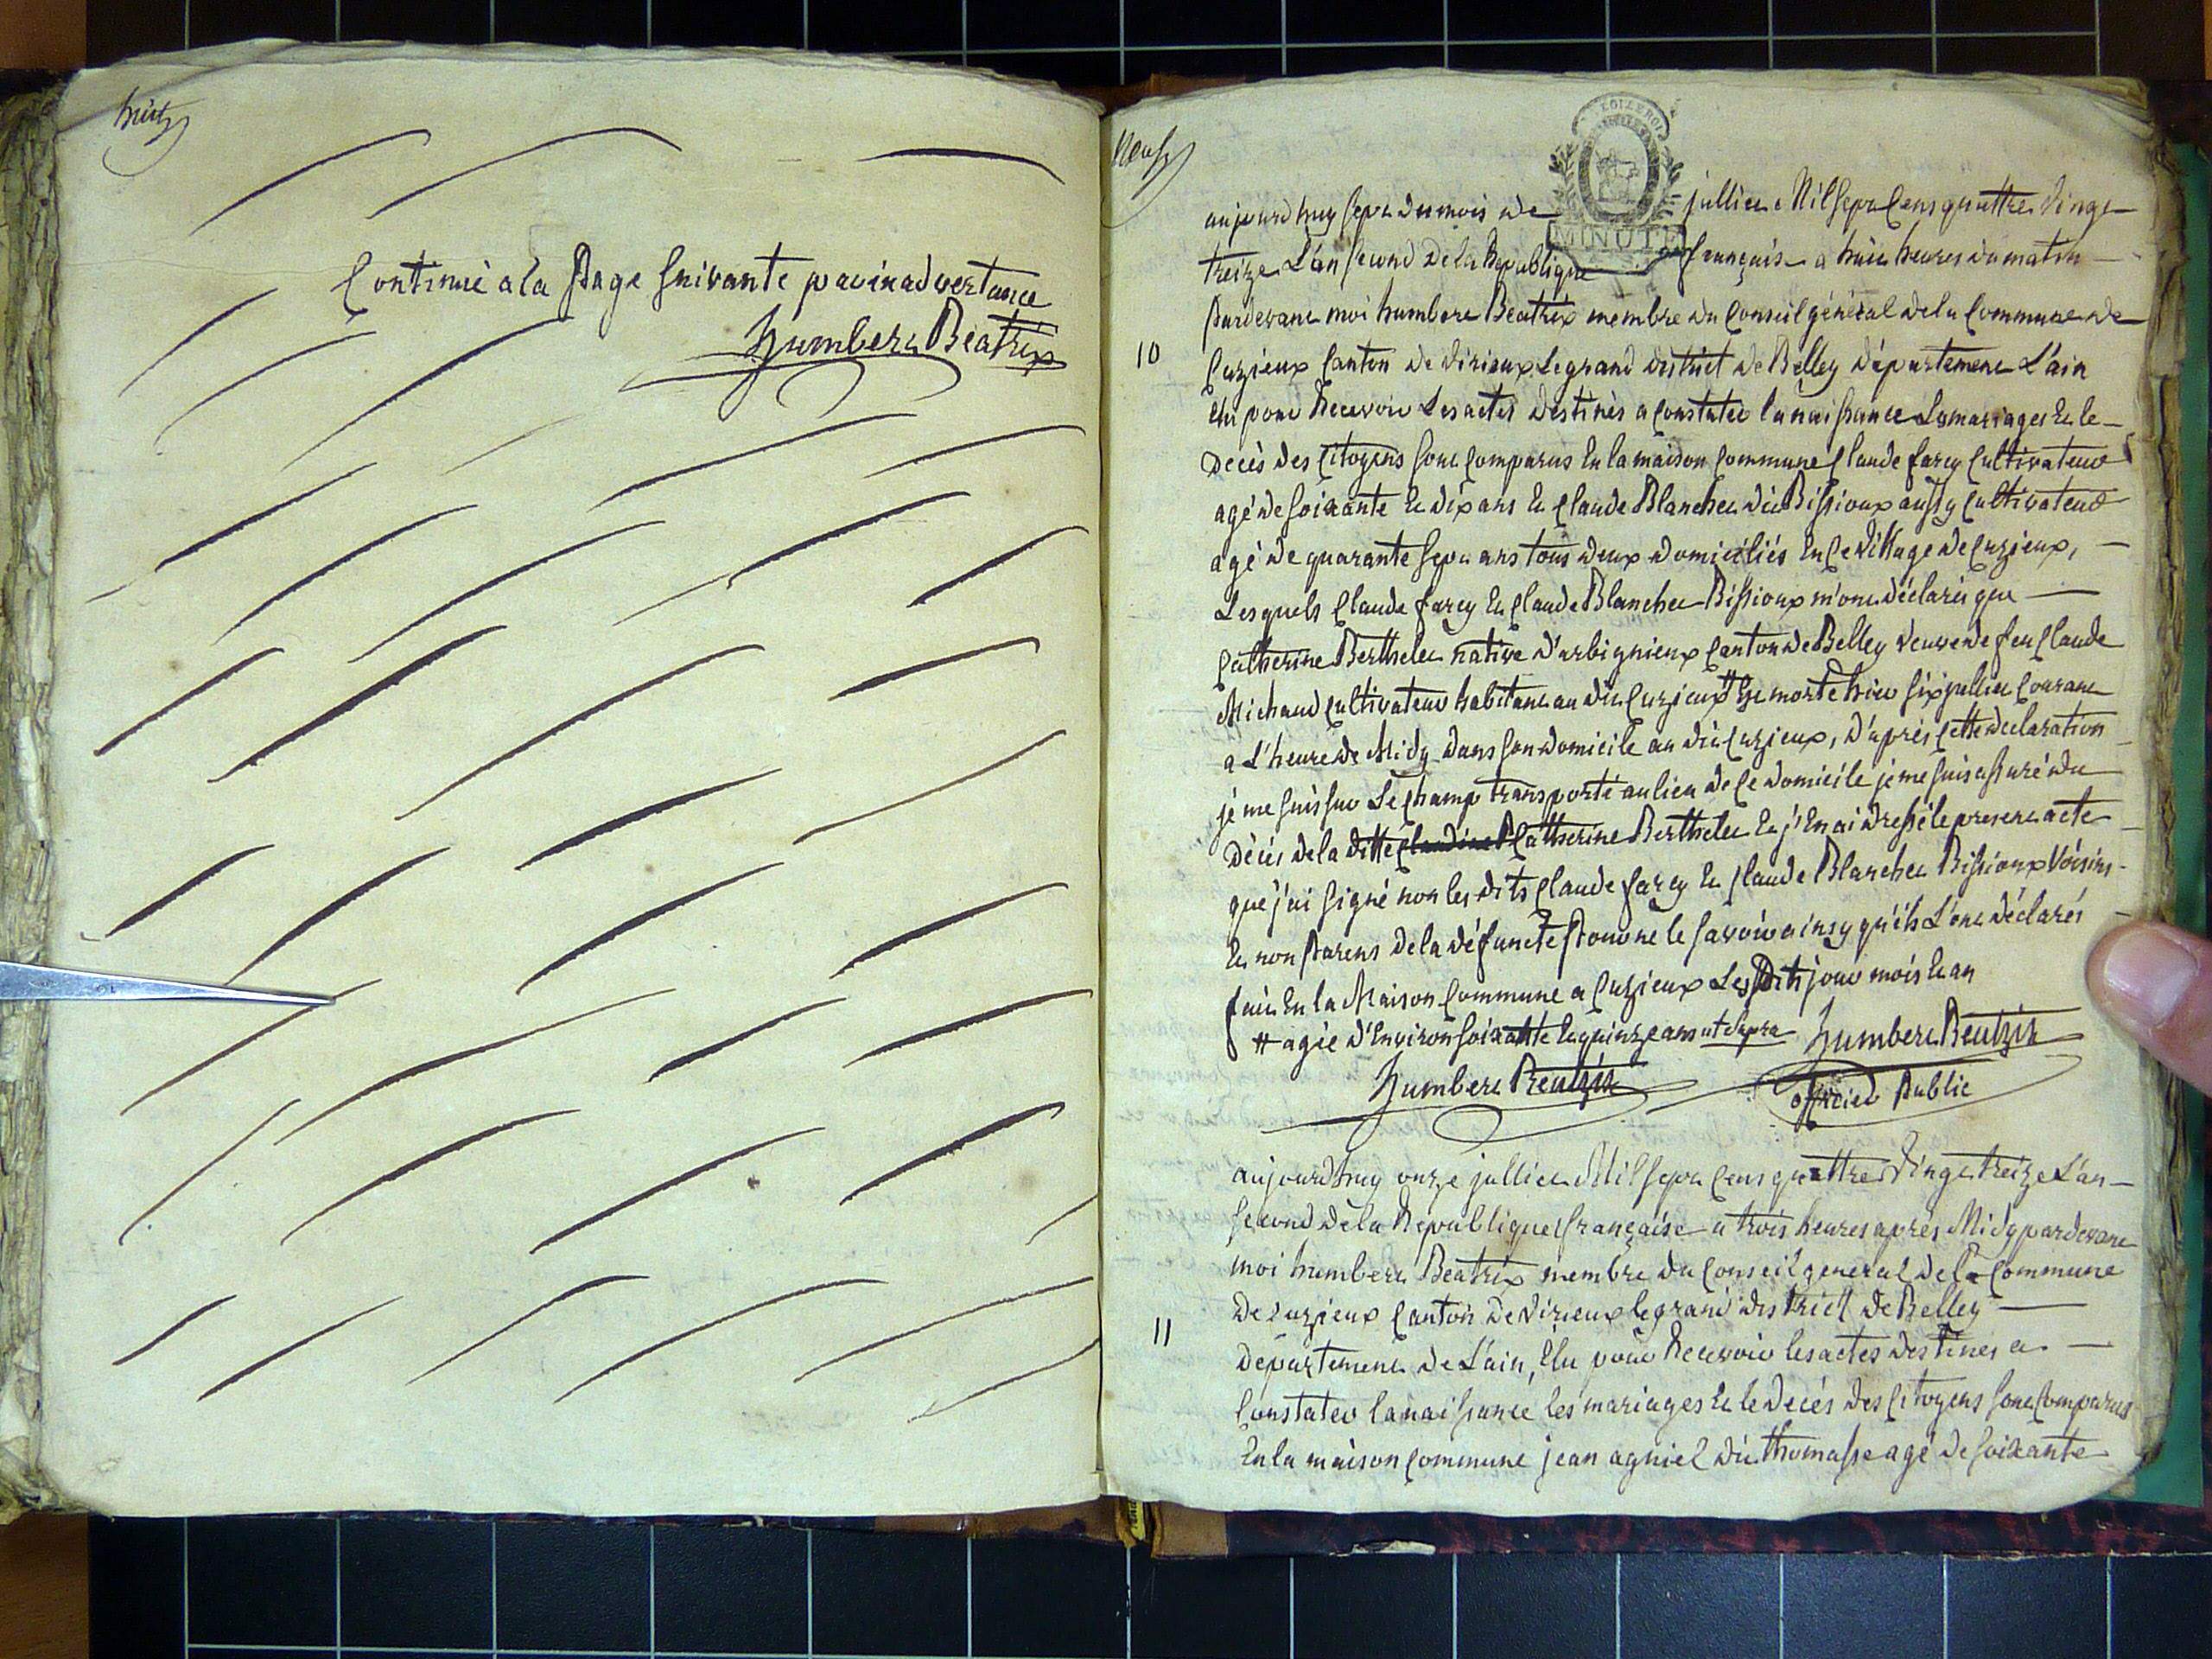 huit
Continué a la Page Suivante par inadvertance
humbert Béatrix
Neuf
LA LOI LE ROI
MINUTE
aujourd huy sept du mois de jullict Mil sept Cens quattre Vingt
treize L'an second de la République française a huit heures du matin
Pardevant moi humbert Béatrix membre du Conseil général de la Commune de
10
Cuzieux Canton de Virieux Le grand district de Belley département L'ain
élu pour Recevoir Les actes destinés a Constater la naissance Les mariages Et le
Décès des Citoyens sont Comparus En la maison Commune Claude farcy Cultivateur
agé de soixante Et dix ans Et Claude Blanchet dit Bissioux aussy Cultivateur
agé de quarante sept ans tous deux domiciliés En Ce Village de Cuzieux,
Lesquels Claude farcy Et Claude Blanchet Bissioux m'ont déclarés que
Catherine Berthelet native d'arbignieux Canton de Belley Veuve de feu Claude
Michaud Cultivateur habitant au dit Cuzieux # Est morte hier six jullict Courant
a L'heure de Midy dans son domicile au dit Cuzieux, D'après Cette déclaration
je me suis sur Le Champ transporté au lieu de Ce domicile je me suis assuré du
Décès de la ditte Claudine Catherine Berthelet Et j'En ai dressé le present acte
que j'ai signé non les dits Claude farcy Et Claude Blanchet Bissioux Voisins
Et non Parens de la défuncte Pour ne le savoir ainsy qu'ils L'ont déclarés
fait En la Maison Commune a Cuzieux Les Dits jour mois Et an
# agée d'Environ soixante Et quinze ans ut supra humbert Béatrix
humbert Béatrix officier Public
aujourdhuy onze jullict Mil sept Cens quattre Vingt treize L'an
second de la Republique française a trois heures après Midy pardevant
moi humbert Béatrix membre du Conseil general de la Commune
de Cuzieux Canton de Virieux le grand district de Belley
11
département de L'ain, Elu pour Recevoir les actes destinés a
Constater la naissance les mariages Et le décès des Citoyens sont Comparus
En la maison Commune jean agniel dit thomasse agé de soixante